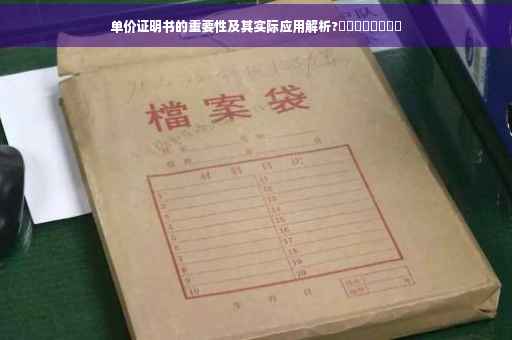 单价证明书的重要性及其实际应用解析?□□□□□□□□
檔案袋
材料目次
1 11
2 12
3 13
4 14
5 15
6 16
7 17
8 18
9 19
10 20
年 月 日